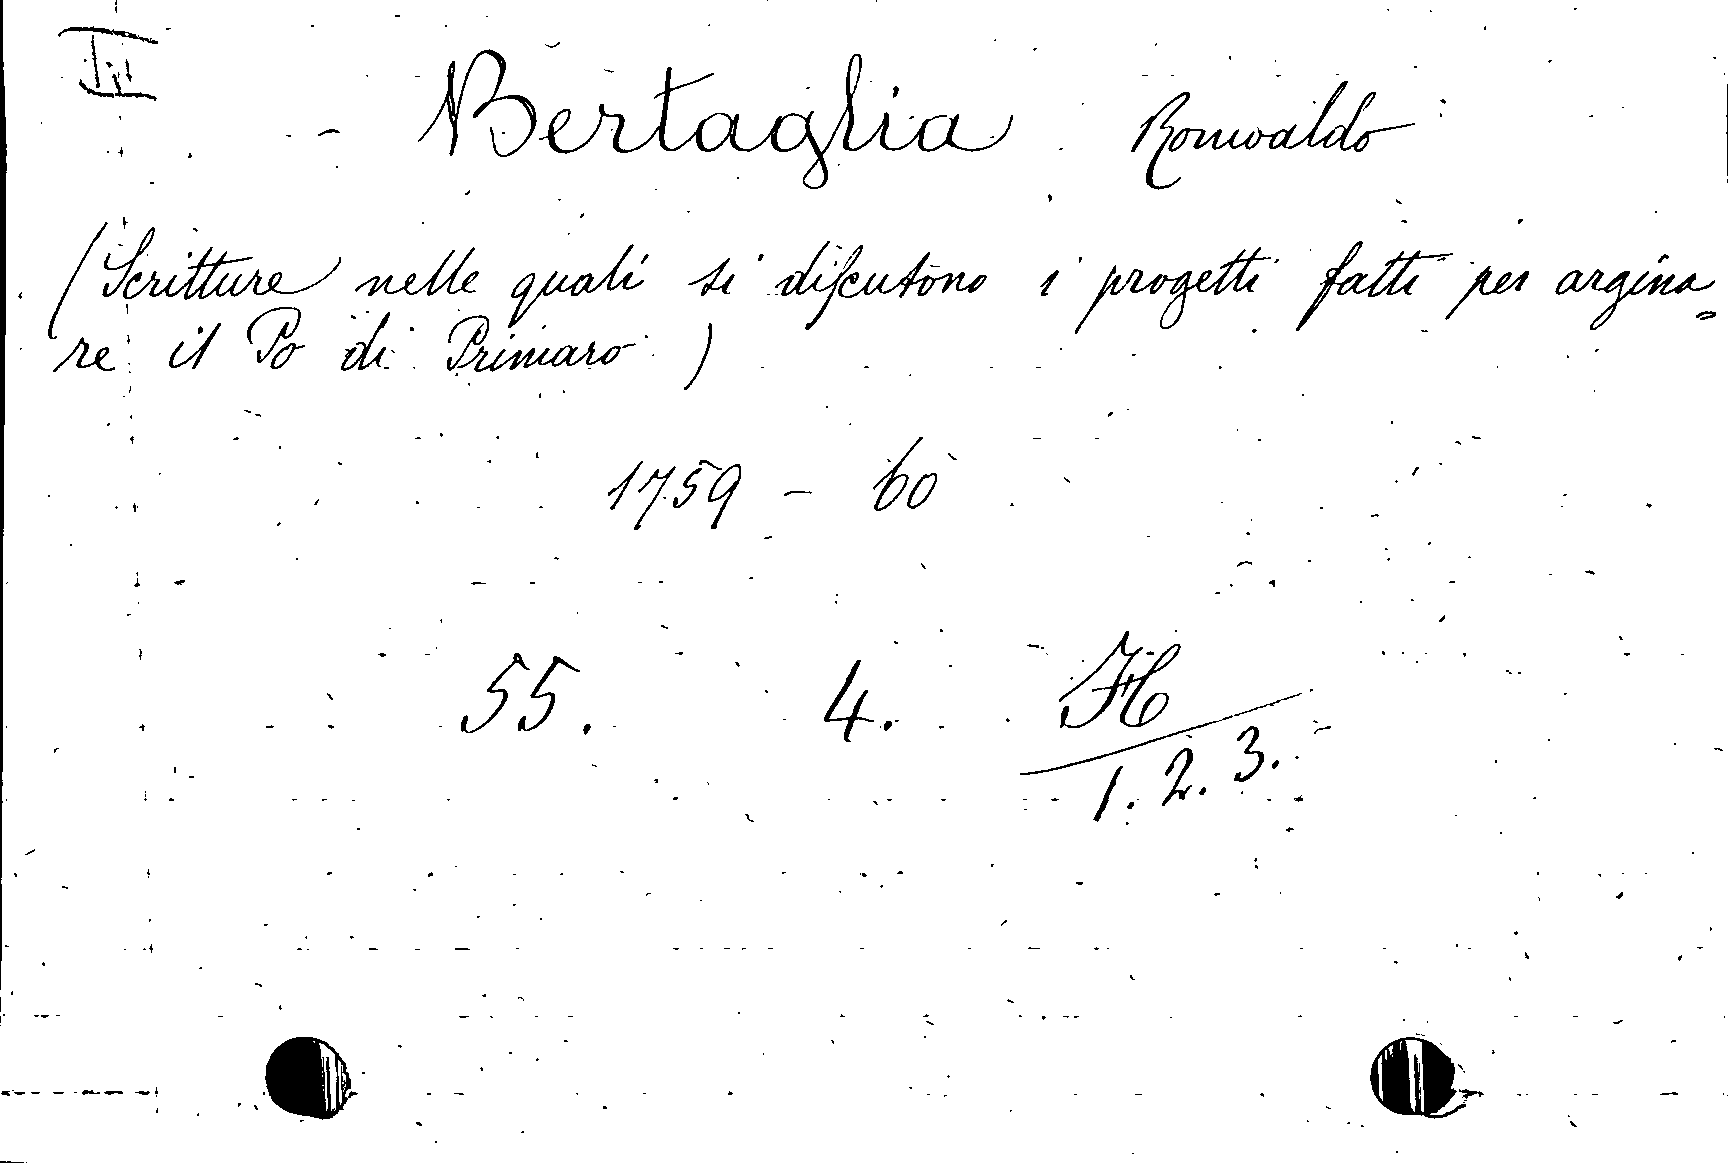 II
Bertaglia Romualdo
(Scritture nelle quali si discutono i progetti fatti per argina=
re il Po di Primaro)
1759 - 60
55. 4. H
1. 2. 3.